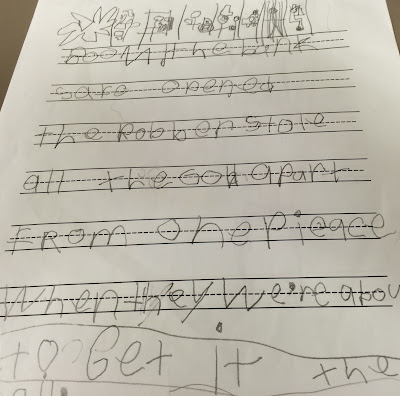 BooM the bank
sake opened
the Robber Stole
all the Gold apart
FRom One Pieace
When they We're abou
to Get it the